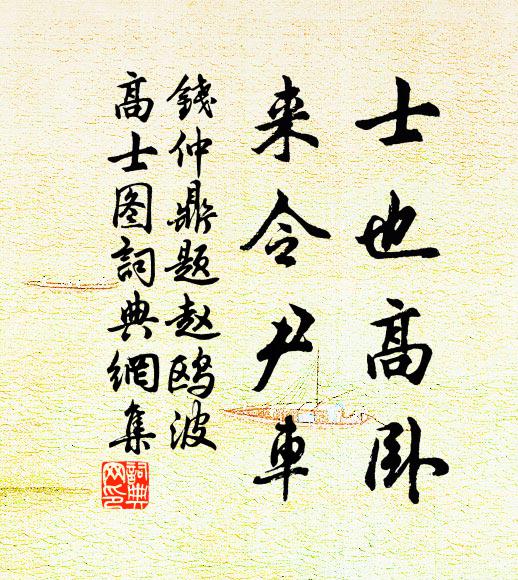 士也高卧
来令尹車
錢仲鼎题赵鸥波
高士图詞典網集
詞典
网印